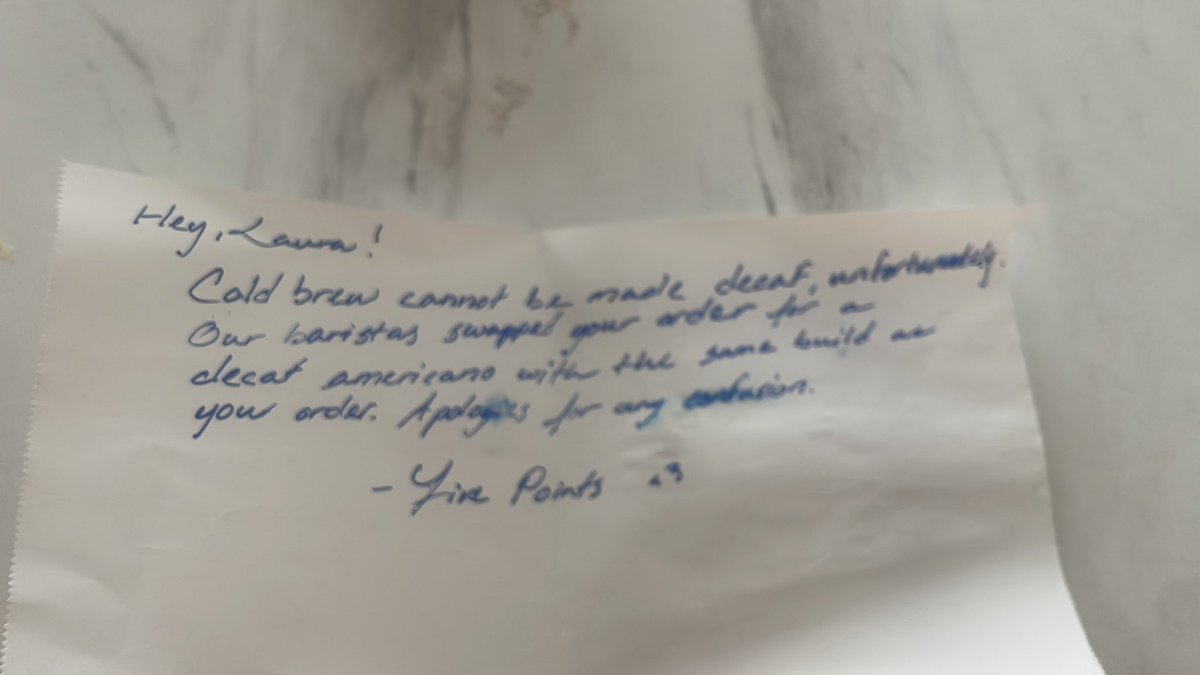 Hey, Laura!
Cold brew cannot be made decaf, unfortunately.
Our baristas swapped your order for a
decaf americano with the same build as
your order. Apologies for any confusion.
- Five Points <3